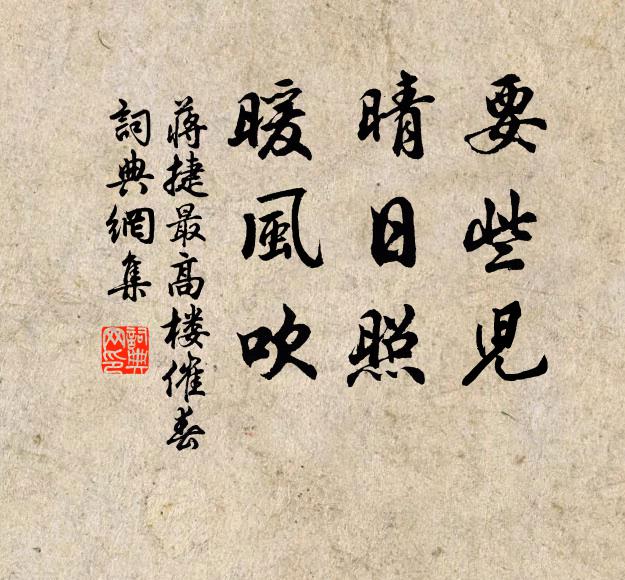 要些兒
晴日照
暖風吹
蔣捷最高樓催春
詞典網集
詞典網印